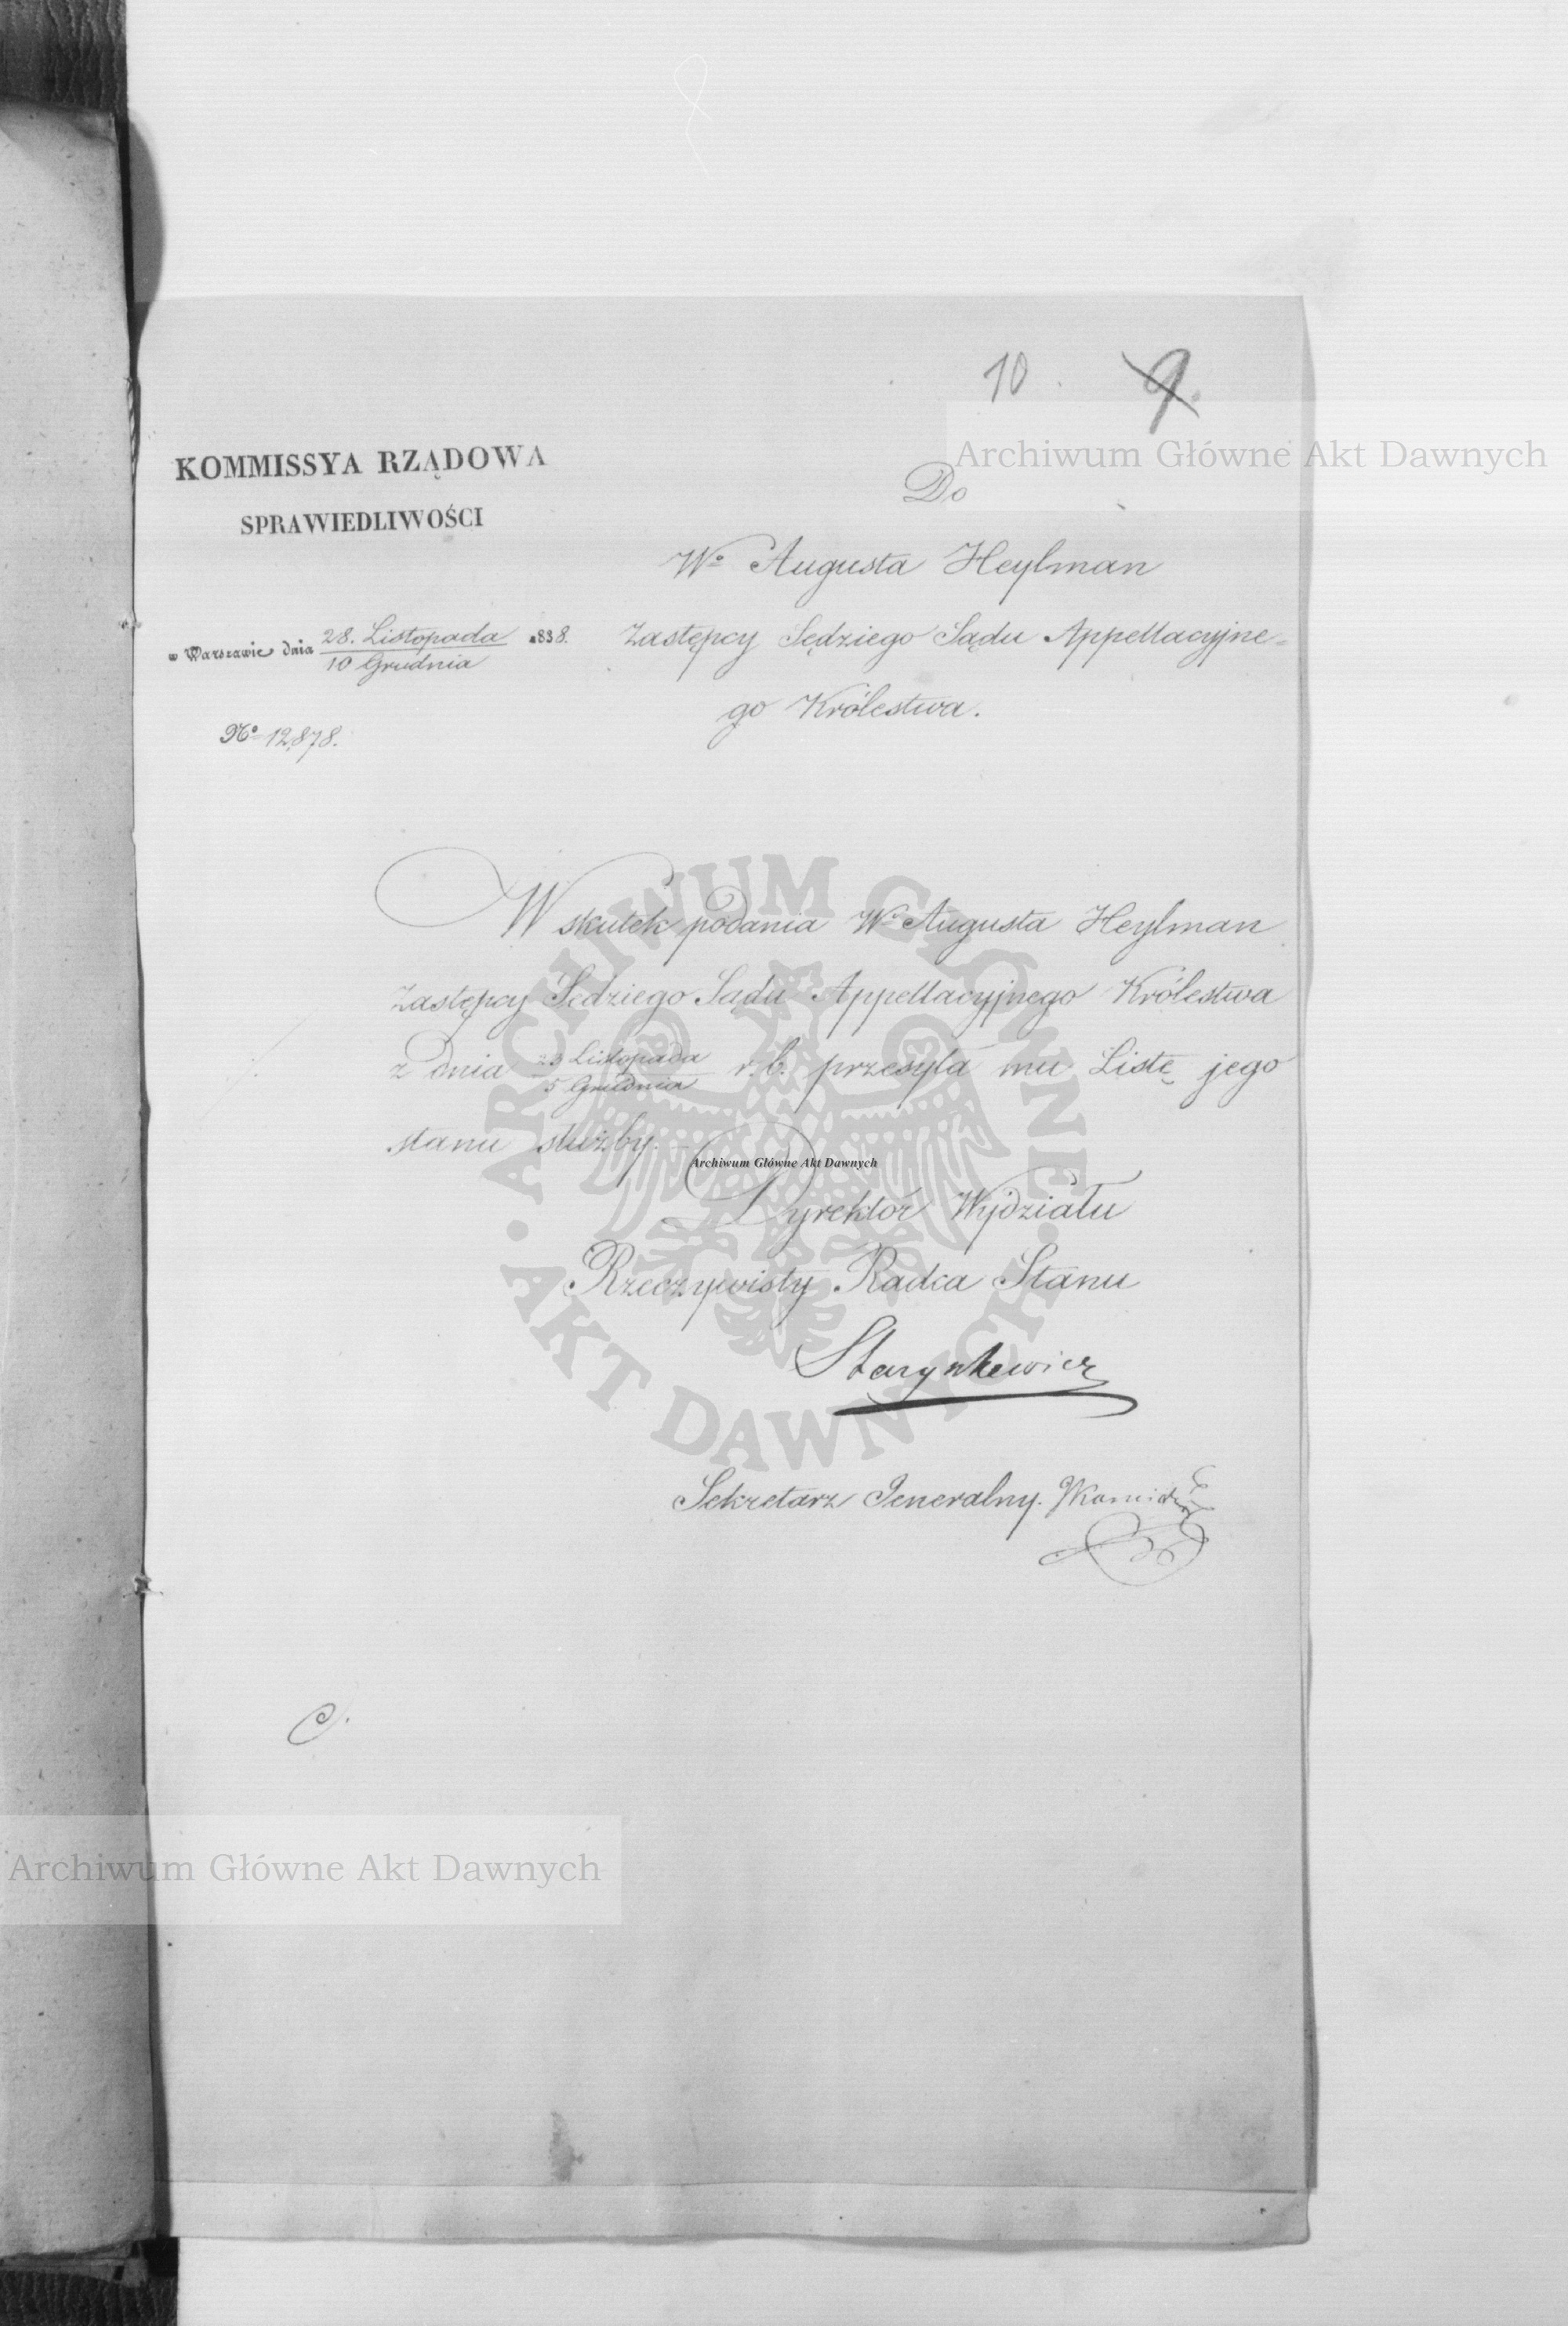 10. 9.
Archiwum Główne Akt Dawnych
KOMMISSYA RZĄDOWA
SPRAWIEDLIWOŚCI
w Warszawie dnia 28. Listopada / 10 Grudnia 1838.
No 12,878.
Do
Wo Augusta Heylman
Zastępcy Sędziego Sądu Appellacyjne=
go Królestwa.
W skutek podania Wo Augusta Heylman
Zastępcy Sędziego Sądu Appellacyjnego Królestwa
z dnia 23 Listopada / 5 Grudnia r. b. przesyła mu Listę jego
stanu służby.
Archiwum Główne Akt Dawnych
Dyrektór Wydziału
Rzeczywisty Radca Stanu
Starynkewicz
Sekretarz Jeneralny.
C.
ARCHIWUM GŁÓWNE
AKT DAWNYCH
Archiwum Główne Akt Dawnych